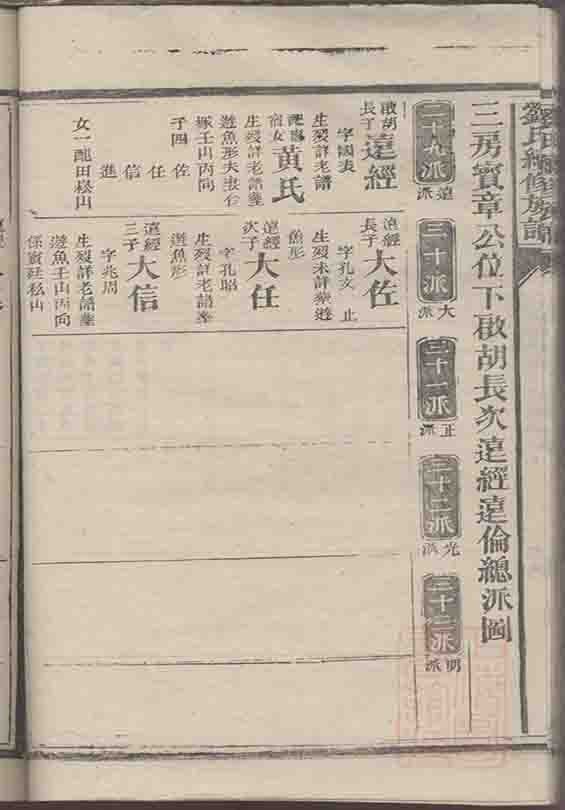 劉氏續修族譜
三房實章公位下啟胡長次遠經遠倫總派圖
二十九派
遠派
三十派
大派
三十一派
正派
三十二派
光派
三十三派
明派
啟胡
長子
遠經
字國表
生歿詳老譜
黃氏
生歿詳老譜葬
遊魚形夫妻合
塚壬山丙向
子四 佐
任
信
進
女一配田崧山
遠經
長子
大佐
字孔文 止
生歿未詳葬遊
魚形
遠經
次子
大任
字孔昭
生歿詳老譜葬
遊魚形
遠經
三子
大信
字兆周
生歿詳老譜葬
遊魚壬山丙向
係寶廷私山